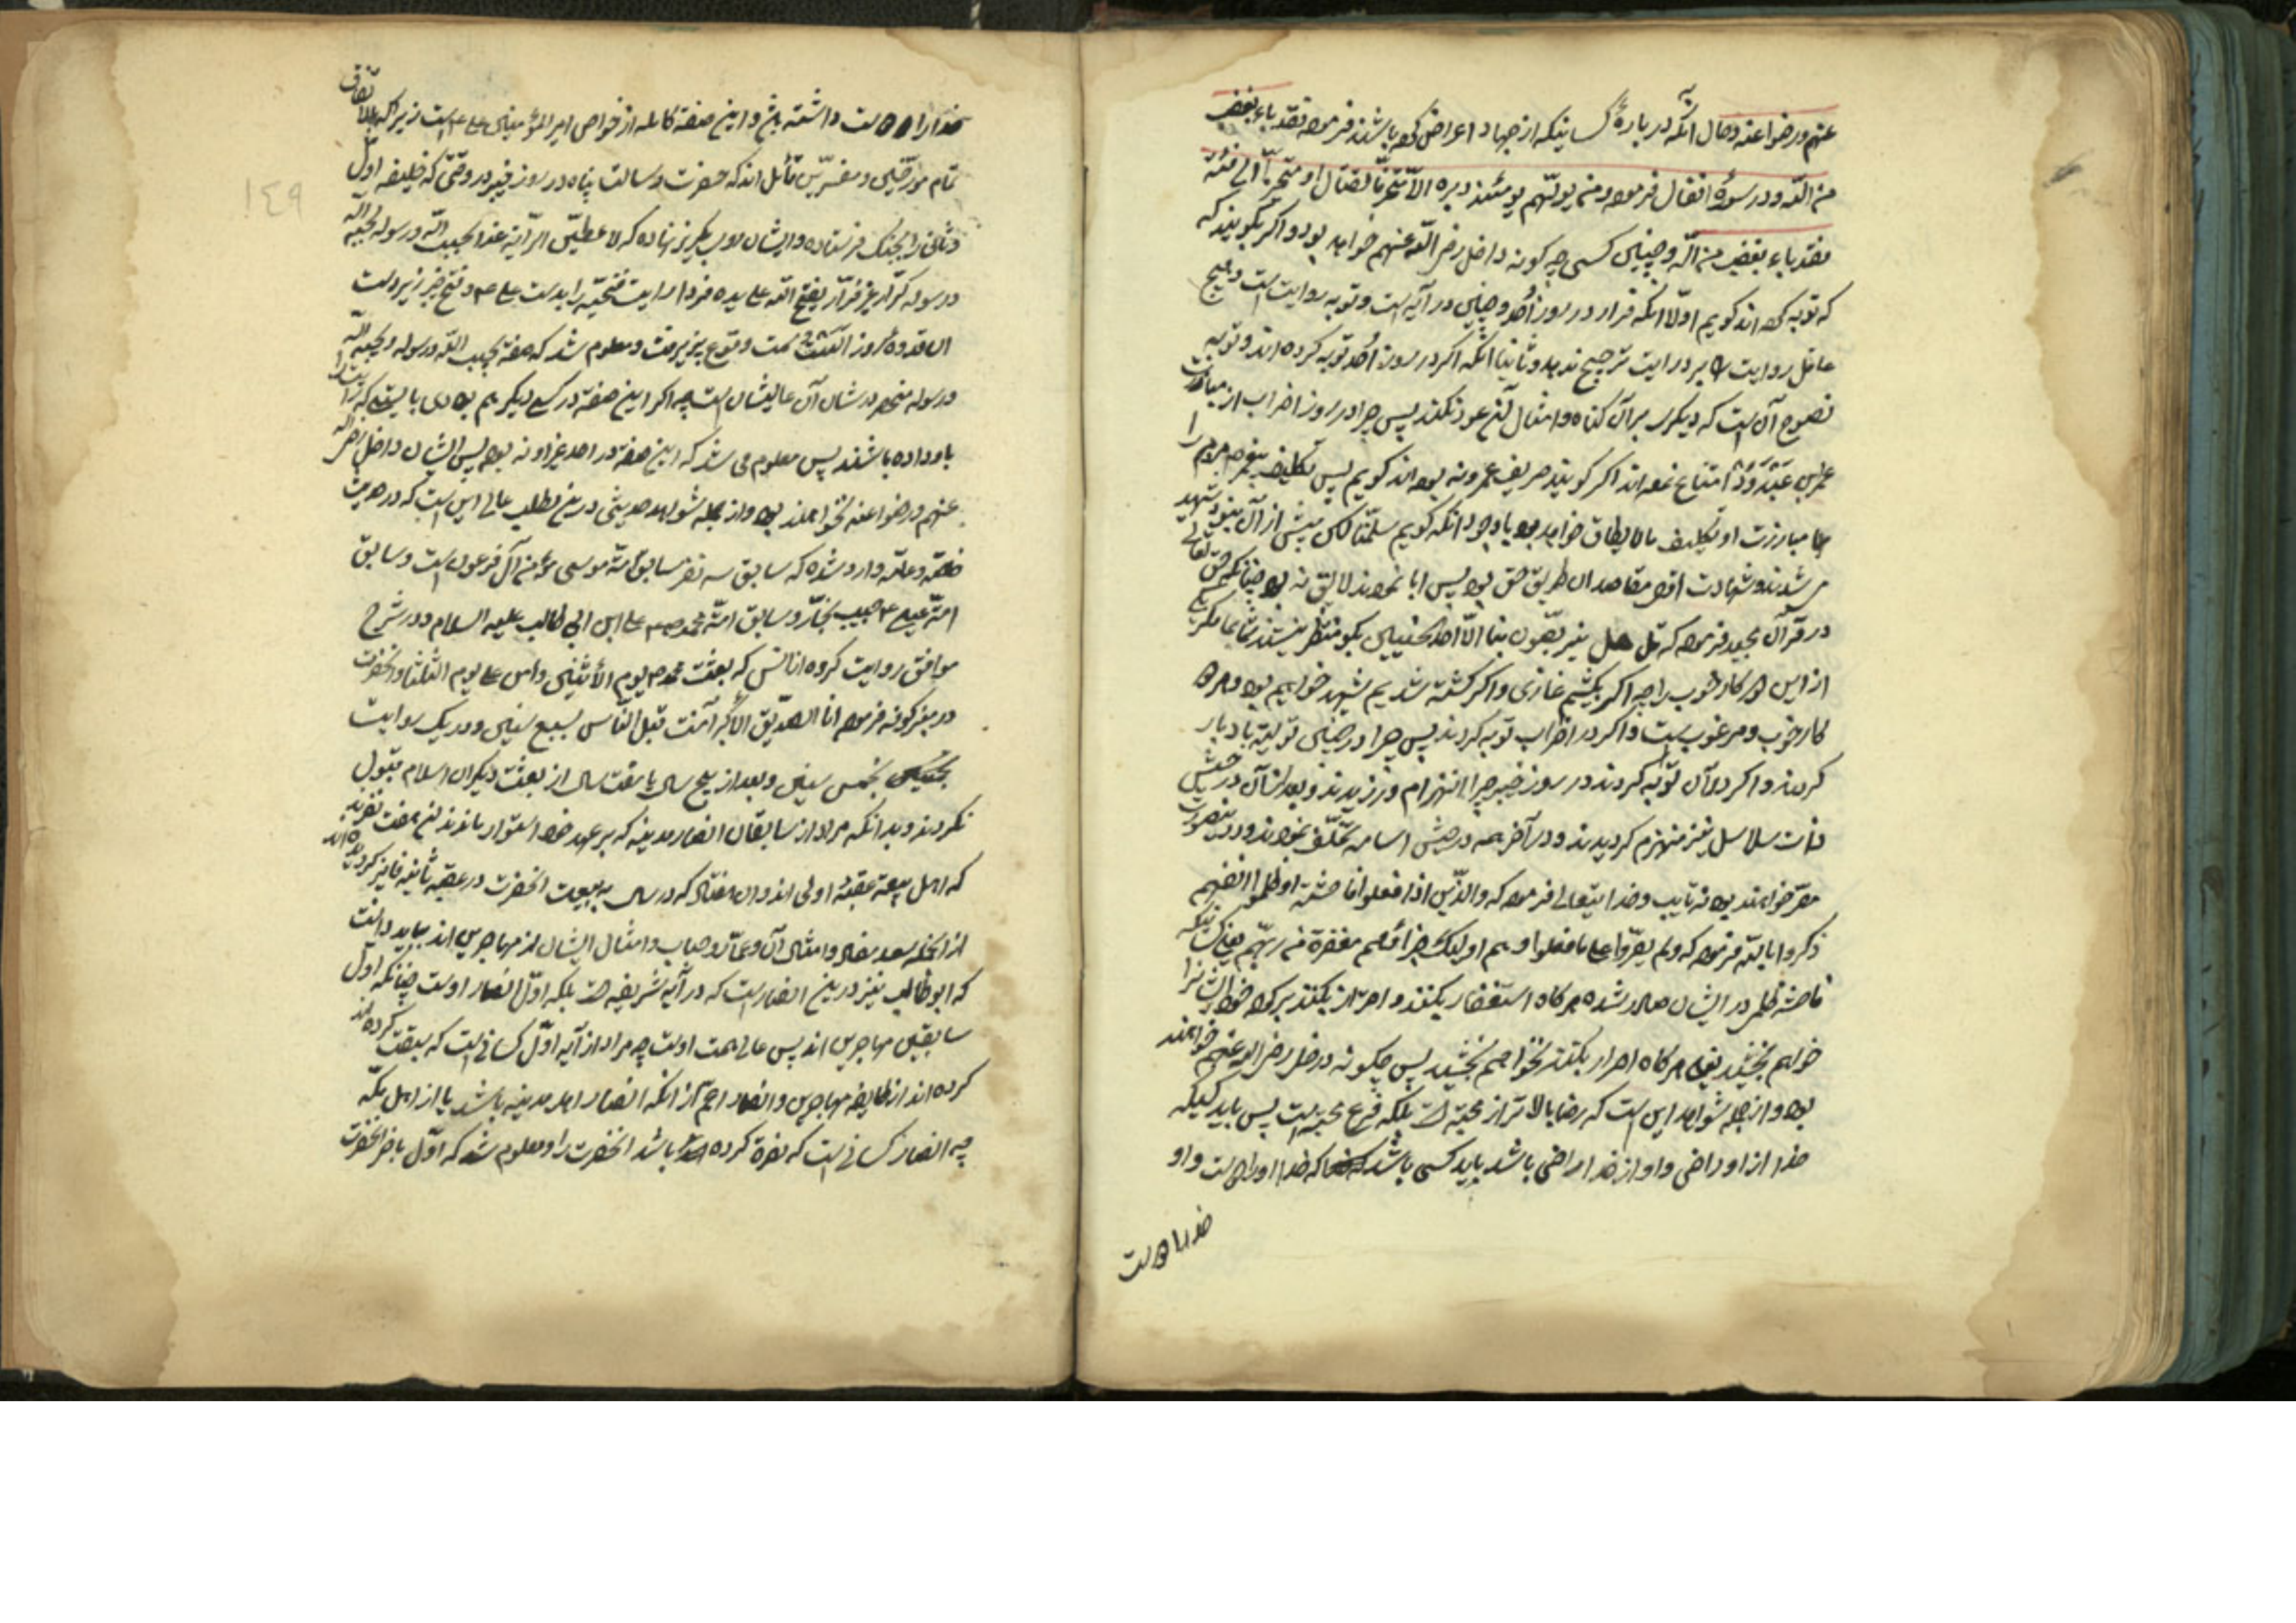 عنهم و رضوا عنه و حال آنکه در باره کسانیکه از جهاد اعراض کرده باشند فرموده فقد باء بغضب
من الله و در سوره انفال فرموده و من یولهم یومئذ دبره الا متحرفا لقتال او متحیزا الی فئة
فقد باء بغضب من الله و چنین کسی چه گونه داخل رضی الله عنهم خواهد بود و اگر بگویند که
که توبه کرده اند گویم اولا آنکه فرار در روز احد و چنین در آیه است و توبه روایت است و هیچ
عاقل روایت را بر درایت ترجیح ندهد و ثانیا آنکه اگر در روز احد توبه کرده اند و توبه
نصوح آن است که دیگر بر آن گناه و امثال آن عود نکنند پس چرا در روز احزاب از مبارزت
عمرو بن عبد ود امتناع نموده اند اگر گویند حریف عمرو نه بوده اند گویم پس تکلیف پیغمبر مردم را
بمبارزت او تکلیف ما لا یطاق خواهد بود با وجود آنکه گویم سلمنا لکن بیش از آن نبود شهید
می شدند و شهادت اقصی مقاصد آن طریق حق بود پس ابا نمودند لایق نه بود چنانکه حق تعالی
در قرآن مجید فرموده که قل هل تربصون بنا الا احدی الحسنیین بگو منتظر نیستند شما بما مگر یکی
از این دو کار خوب را چه اگر بکشیم غازی و اگر کشته شدیم شهید خواهیم بود و هر دو
کار خوب و مرغوب است و اگر در احزاب توبه کردند پس چرا در حنین تولیه ادبار
کردند و اگر در آن توبه کردند در روز خیبر چرا انهزام ورزیدند و بعد از آن در جیش
ذات سلاسل نیز منهزم گردیدند و در آخر همه در جیش اسامه تخلف نمودند و درینصورت
مصر خواهند بود نه تایب و خدایتعالی فرموده که والذین اذا فعلوا فاحشة او ظلموا انفسهم
ذکروا الله فرموده که و لم یصروا علی ما فعلوا و هم اولیک جزاؤهم مغفرة من ربهم یعنی کسانیکه
فاحشه ظلمی در ایشان صادر شده هر گاه استغفار بکنند و اصرار نکنند بر کرده خود ایشانرا
خواهم بخشید یعنی هر گاه اصرار بکنند نخواهم بخشید پس چگونه داخل رضی الله عنهم خواهند
بود و از جمله شواهد این است که رضا بالاتر از محبة است بلکه فرع محبة است پس باید کسیکه
خدا از او راضی و او از خدا راضی باشد باید کسی باشد که خدا او را دوست و او
خدا را دوست
خدا را دوست داشته باشد و این صفة کامله از خواص امیر المؤمنین علی ع است زیرا که باتفاق
تمام مورخین و مفسرین قائل اند که حضرت رسالت پناه در روز خیبر در وقتی که خلیفه اول
و ثانی را بجنگ فرستاده و ایشان رو بگریز نهاده که لاعطین الرایة غدا یحب الله و رسوله یحبه الله
و رسوله کرار غیر فرار یفتح الله علی یده فردا رایت فتحیه را بدست علی ع داد و فتح خیبر از یردست
آن قدوه روز سمت وقوع پزیرفت و معلوم شد که صفة یحب الله و رسوله و یحبه الله
و رسوله منحصر در شان آن عالیشان است چه اگر این صفة در کسی دیگر هم بودی بایستی که رایت را
باو داده باشند پس معلوم می شد که این صفة در احد غیر او نه بود پس ایشان داخل رضی الله
عنهم و رضوا عنه نخواهند بود و از جمله شواهد حدیثی درین مطلب عالی این است که در حدیث
خاصه و عامه وارد شده که سابق سه نفر سابق امة موسی مؤمن آل فرعون است و سابق
امة عیسی ع حبیب نجار و سابق امة محمد ص علی ابن ابی طالب علیه السلام و در شرح
مواقف روایت کرده از انس که بعثت محمد ص یوم الاثنین و اسلم علی یوم الثلثا و آنحضرت
در منبر کوفه فرموده انا الصدیق الاکبر آمنت قبل الناس بسبع سنین و در یک روایت
بخمس سنین و بعد از پنج سال یا هفت سال از بعثت دیگران اسلام قبول
نکردند و بدانکه مراد از سابقان انصار مدینه که بر عهد خود استوار ماندند آن هفت نفرند
که اهل بیعة عقبه اولی اند و آن هفتاد که در سال به بیعت آنحضرت در عقبه ثانیه فایز گردیده اند
از آنجمله سعد معاذ و امثال آن و عمار و خباب و امثال ایشان از مهاجرین اند بباید دانست
که ابو طالب نیز درین انصار است که در آیه شریفه است بلکه اول انصار اوست چنانکه اول
سابقین مهاجرین اند پس عالی همت اوست چه مراد از آیه اول کسانی است که سبقت کرده اند
کرده اند از طایفه مهاجرین و انصار اعم از آنکه انصار اهل مدینه باشد یا از اهل مکه
چه انصار کسانی است که نصرة کرده باشد آنحضرت را و معلوم شد که اول ناصر آنحضرت
١٤٩